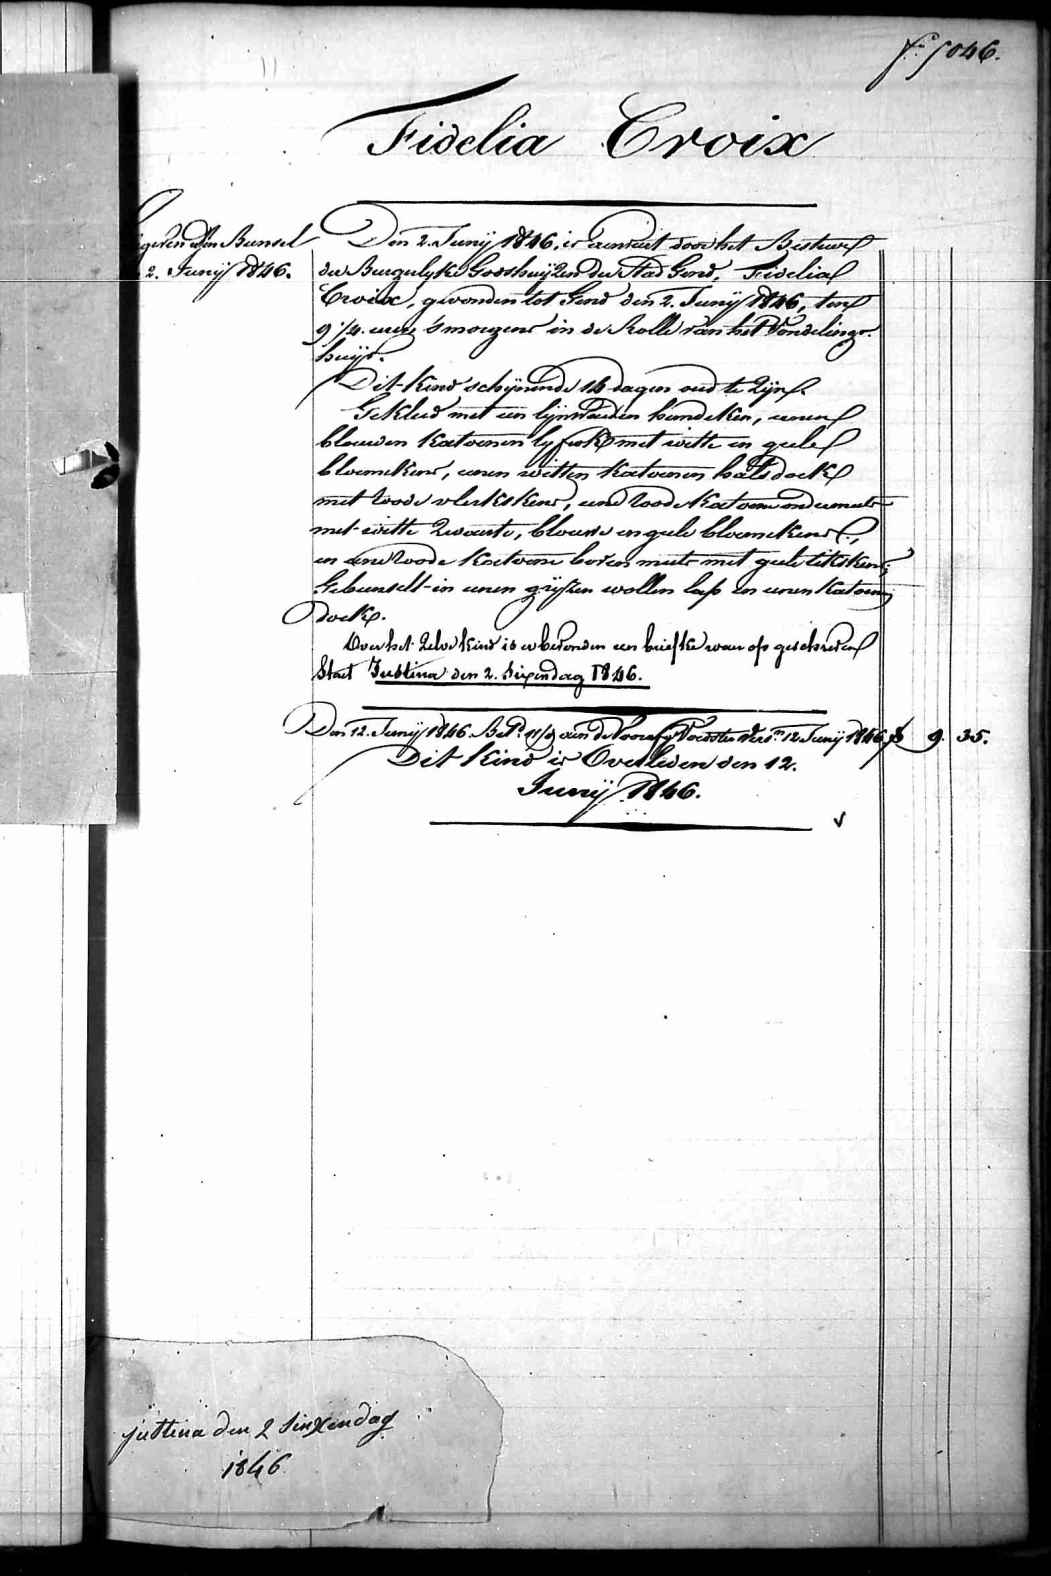 f.° 5046.
Fidelia Croix
gegeven een Bunsel
2. Junij 1846.
Den 2. Junij 1846, is aenveert door het Bestuer
der Burgelyke Godshuijzen der Stad Gend, Fidelia
Croix, gevonden tot Gend den 2. Junij 1846, ten
9 1/4 uren 's morgens in de Rolle van het Vondelings-
huijs.
Dit Kind schijnende 14 dagen oud te zijn.
Gekleed met een lijnwaeden hemdeken, eenen
blauwen katoenen lyfrok met witte en geele
bloemekens, eenen witten katoenen halsdoek
met roode vlekskens, eene roode katoene ondermuts
met witte zwarte, blauwe en geele bloemekens,
en eene roode katoene boven muts met geele titskens;
Gebunselt in eenen grijsen wollen lap en eenen katoenen
doek.
Over het zelve kind is er bevonden een briefke waer op geschreven
Staet Justina den 2. Sixendag 1846.
Den 12. Junij 1846. Bet.d aen de Voorsz. Voedster 12 Junij 1846 f 9. 35.
Dit Kind is Overleden den 12.
Junij 1846.
justina den 2 sinxendag
1846